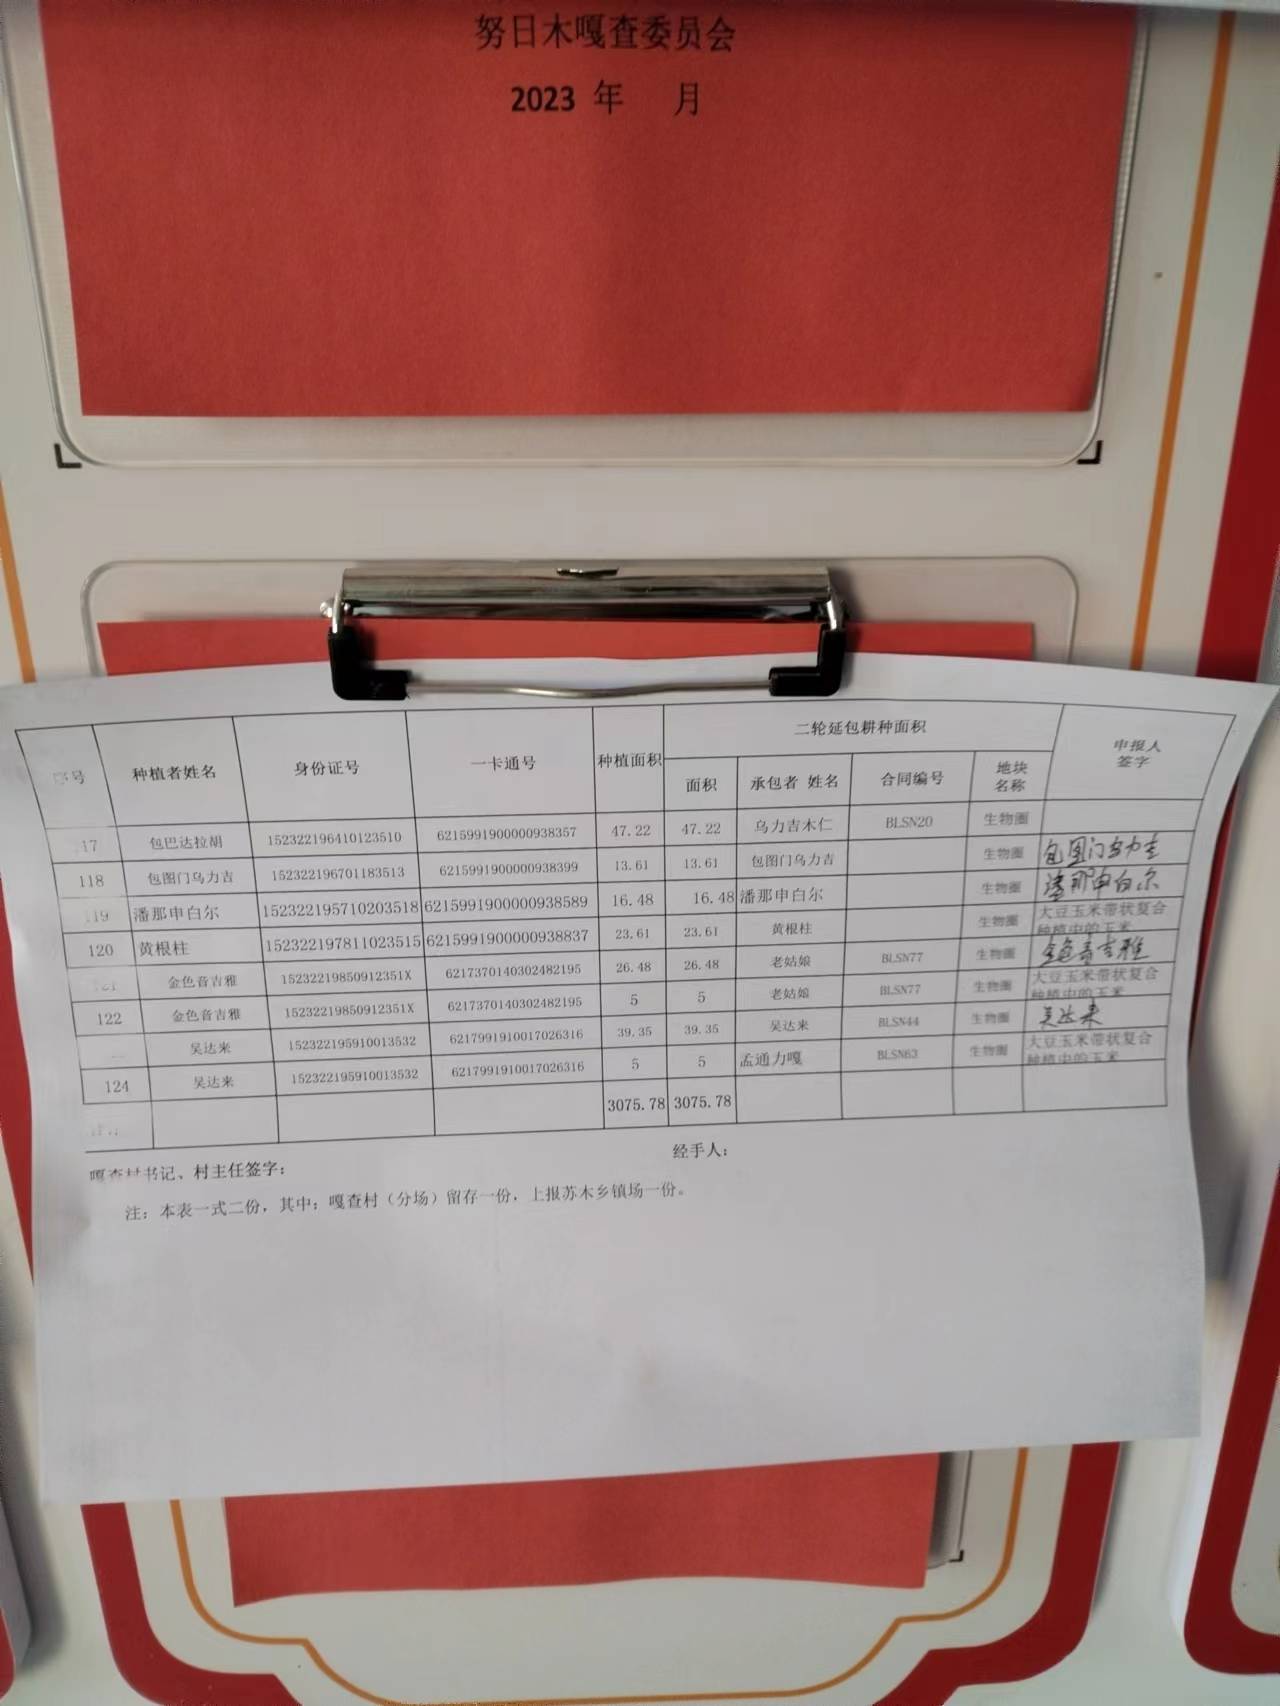 努日木嘎查委员会
2023 年 月
序号 种植者姓名 身份证号 一卡通号 种植面积 二轮延包耕种面积 申报人签字
面积 承包者 姓名 合同编号 地块名称
17 包巴达拉胡 152322196410123510 6215991900000938357 47.22 47.22 乌力吉木仁 BLSN20 生物圈
118 包图门乌力吉 152322196701183513 6215991900000938399 13.61 13.61 包图门乌力吉 生物圈 包图门乌力吉
119 潘那申白尔 152322195710203518 6215991900000938589 16.48 16.48 潘那申白尔 生物圈 潘那申白尔
120 黄根柱 152322197811023515 6215991900000938837 23.61 23.61 黄根柱 生物圈 大豆玉米带状复合种植中的玉米
金色音吉雅 15232219850912351X 6217370140302482195 26.48 26.48 老姑娘 BLSN77 生物圈 金色音吉雅
122 金色音吉雅 15232219850912351X 6217370140302482195 5 5 老姑娘 BLSN77 生物圈 大豆玉米带状复合种植中的玉米
吴达来 152322195910013532 6217991910017026316 39.35 39.35 吴达来 BLSN44 生物圈 吴达来
124 吴达来 152322195910013532 6217991910017026316 5 5 孟通力嘎 BLSN63 生物圈 大豆玉米带状复合种植中的玉米
3075.78 3075.78
嘎查村书记、村主任签字： 经手人：
注：本表一式二份，其中：嘎查村（分场）留存一份，上报苏木乡镇场一份。